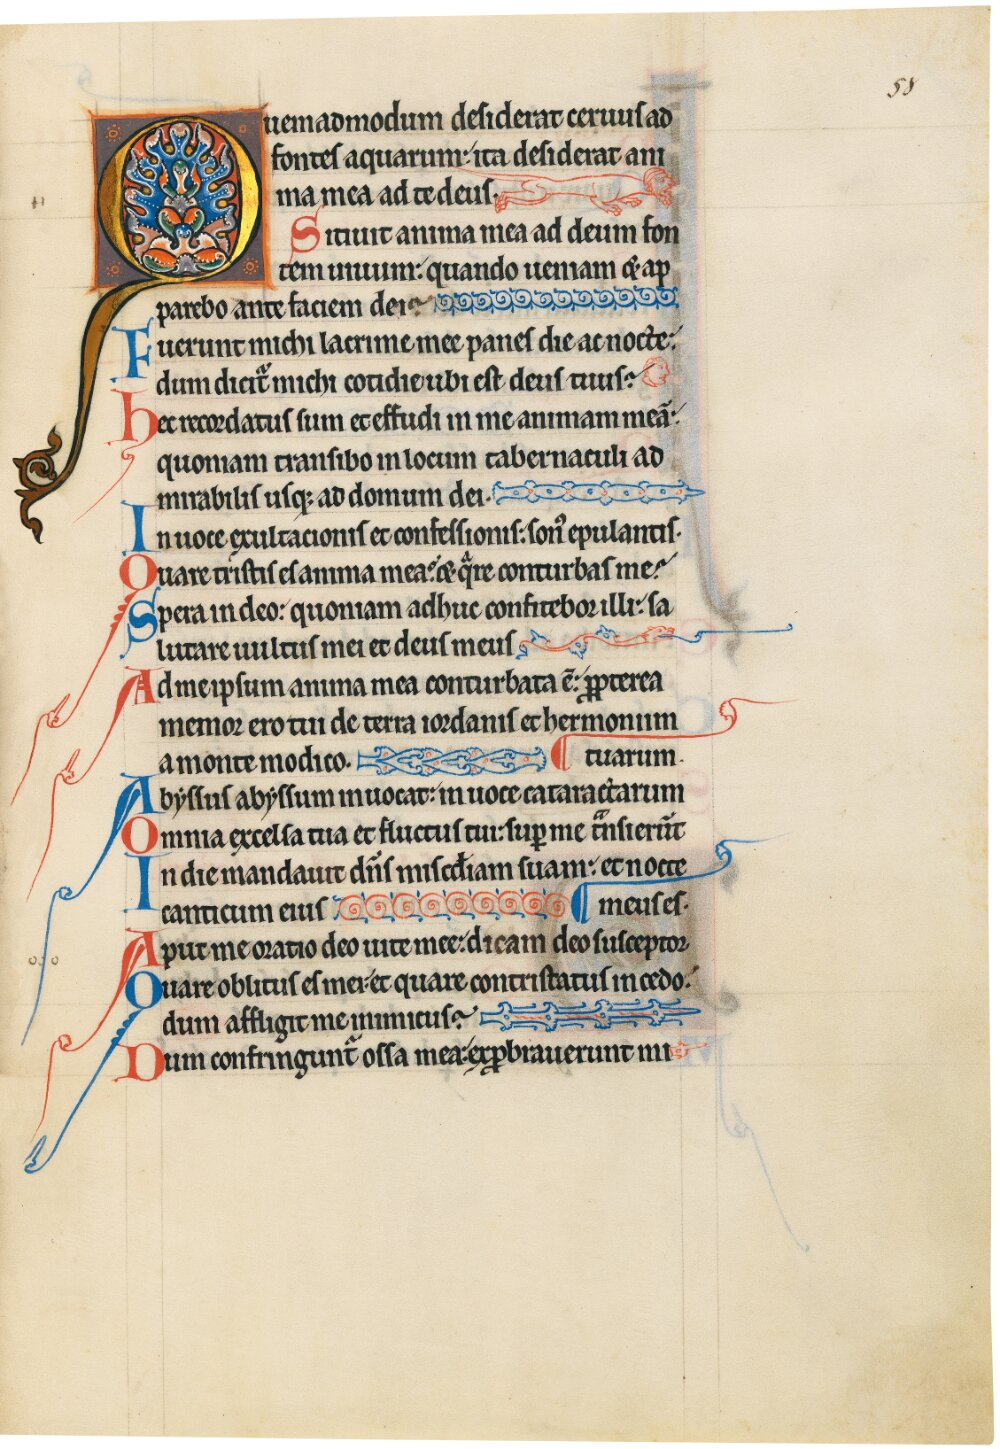 58
Quemadmodum desiderat ceruus ad
fontes aquarum: ita desiderat ani
ma mea ad te deus.
Sitiuit anima mea ad deum fon
tem uiuum: quando ueniam & ap
parebo ante faciem dei?
Fuerunt michi lacrime mee panes die ac nocte:
dum dicit᷑ michi cotidie ubi est deus tuus?
hec recordatus sum et effudi in me animam meā:
quoniam transibo in locum tabernaculi ad
mirabilis usq; ad domum dei.
In uoce exultacionis et confessionis: son᷒ epulantis.
Quare tristis es anima mea? & qͣre conturbas me?
Spera in deo: quoniam adhuc confitebor illi: sa
lutare uultus mei et deus meus
Ad me ipsum anima mea conturbata ē: ꝓpterea
memor ero tui de terra iordanis et hermonium
a monte modico. ¶ tuarum.
Abyssus abyssum inuocat: in uoce cataractarum
Omnia excelsa tua et fluctus tui: sup me tͣnsierūt
In die mandauit dn̄s miscd̄iam suam: et nocte
canticum eius ¶ meus es.
Aput me oratio deo uite mee: dicam deo susceptor
Quare oblitus es mei: et quare contristatus incedo:
dum affligit me inimicus?
Dum confringunt᷑ ossa mea: exꝓbrauerunt mi